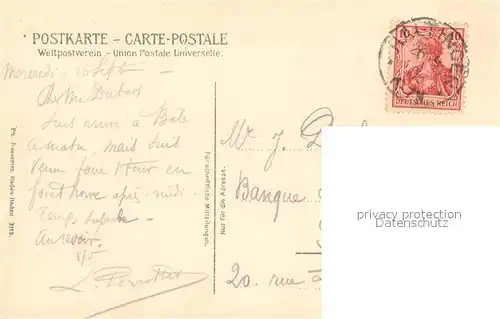 POSTKARTE – CARTE-POSTALE
Weltpostverein – Union Postale Universelle.
Mercredi 16 Sept
Cher Mr Dubort
Suis arrivé à Bâle
ce matin, mais suis
venu faire 1 tour en
forêt noire après-midi
Temps superbe
Au revoir
L. Perrottet
Für schriftliche Mitteilungen.
Nur für die Adresse.
10 10
DEUTSCHES REICH
Mr J.
Banque
20. rue
privacy protection
Datenschutz